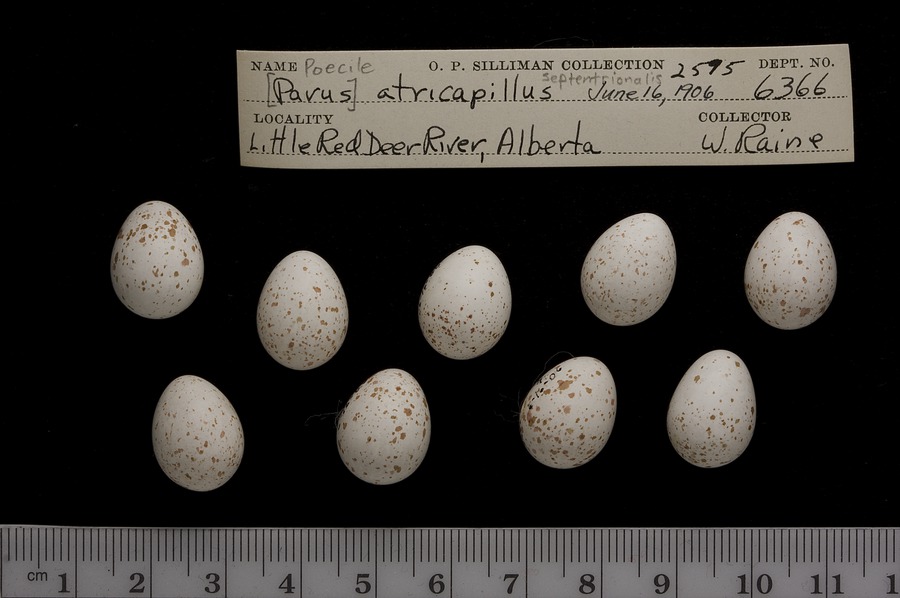 NAME Poecile O. P. SILLIMAN COLLECTION 2595 DEPT. NO.
[Parus] atricapillus septentrionalis June 16, 1906 6366
LOCALITY COLLECTOR
Little Red Deer River, Alberta W. Raine
cm 1 2 3 4 5 6 7 8 9 10 11 1